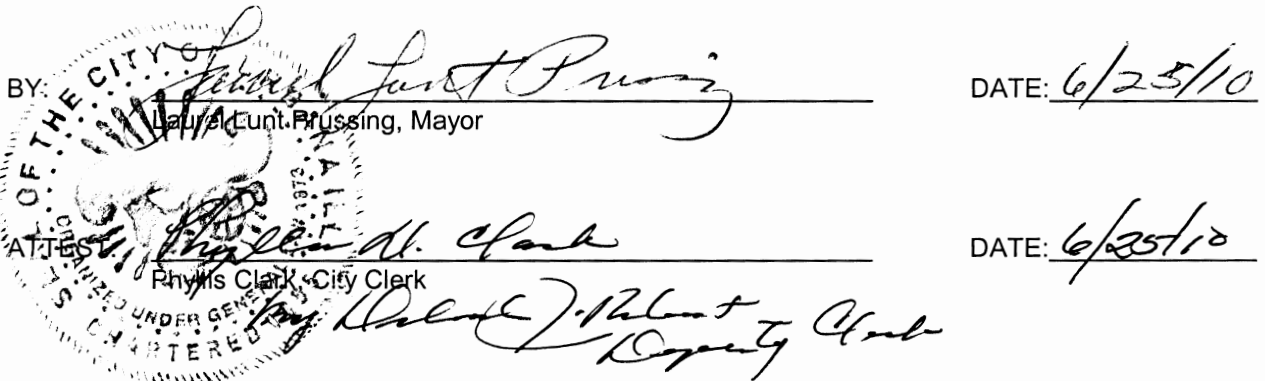 BY: Laurel Lunt Prussing DATE: 6/25/10
Laurel Lunt Prussing, Mayor
ATTEST: Phyllis D. Clark DATE: 6/25/10
Phyllis Clark, City Clerk
by Deborah J. Roberts
Deputy Clerk
OF THE CITY O
ORGANIZED UNDER GENE
CHARTERED